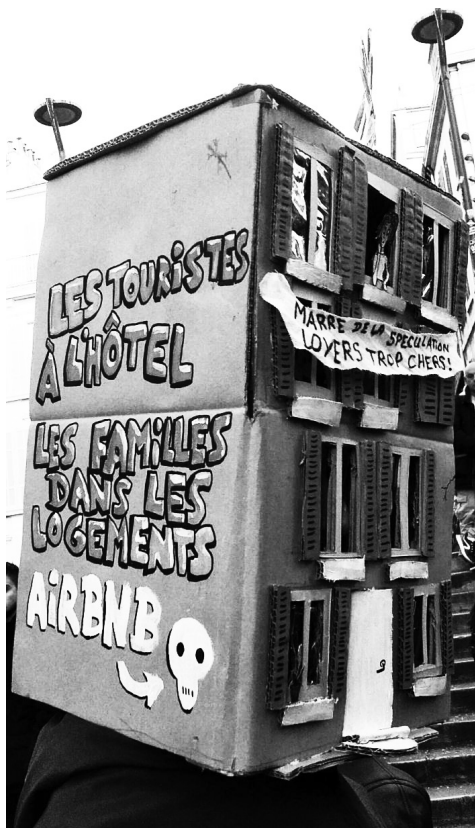 LES TOURiSTES
À L'HÔTEL
LES FAMiLLES
DANS LES
LOGEMENTS
AiRBNB
MARRE DE LA SPECULATION
LOYERS TROP CHERS!